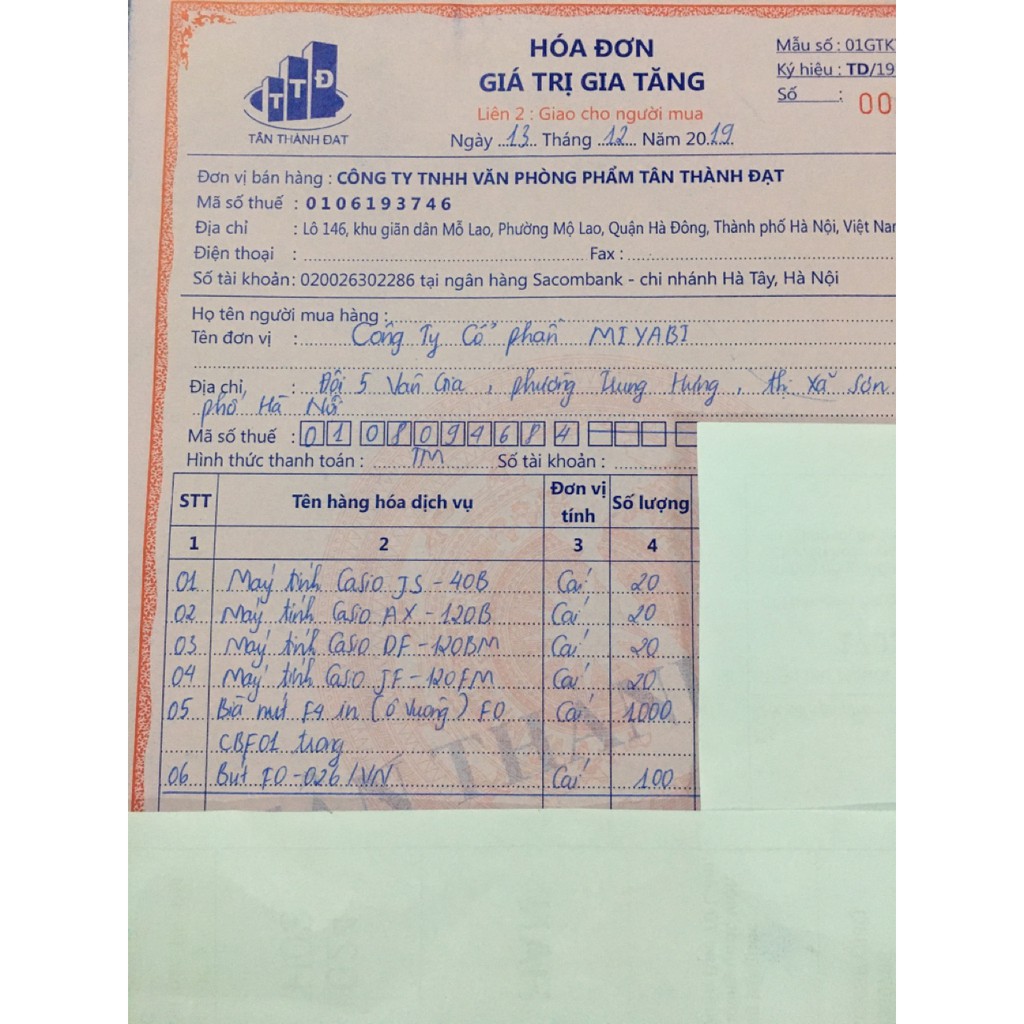 TTĐ
TÂN THÀNH ĐẠT
HÓA ĐƠN
GIÁ TRỊ GIA TĂNG
Liên 2 : Giao cho người mua
Ngày 13 Tháng 12 Năm 2019
Mẫu số : 01GTK
Ký hiệu : TD/19
Số : 00
Đơn vị bán hàng : CÔNG TY TNHH VĂN PHÒNG PHẨM TÂN THÀNH ĐẠT
Mã số thuế : 0106193746
Địa chỉ : Lô 146, khu giãn dân Mỗ Lao, Phường Mộ Lao, Quận Hà Đông, Thành phố Hà Nội, Việt Nam
Điện thoại : Fax :
Số tài khoản: 020026302286 tại ngân hàng Sacombank - chi nhánh Hà Tây, Hà Nội
Họ tên người mua hàng :
Tên đơn vị : Công Ty Cổ phần MIYABI
Địa chỉ, : Đội 5 Vân Gia, phường Trung Hưng, thị xã Sơn
phố Hà Nội
Mã số thuế : 0108094684
Hình thức thanh toán : TM Số tài khoản :
STT Tên hàng hóa dịch vụ Đơn vị tính Số lượng
1 2 3 4
01 Máy tính Casio JS - 40B Cái 20
02 Máy tính Casio AX - 120B Cái 20
03 Máy tính Casio DF - 120BM Cái 20
04 Máy tính Casio JF - 120FM Cái 20
05 Bìa nút F4 in (ô vuông) FO Cái 1000
CBF01 trong
06 Bút FO - 026/VN Cái 100